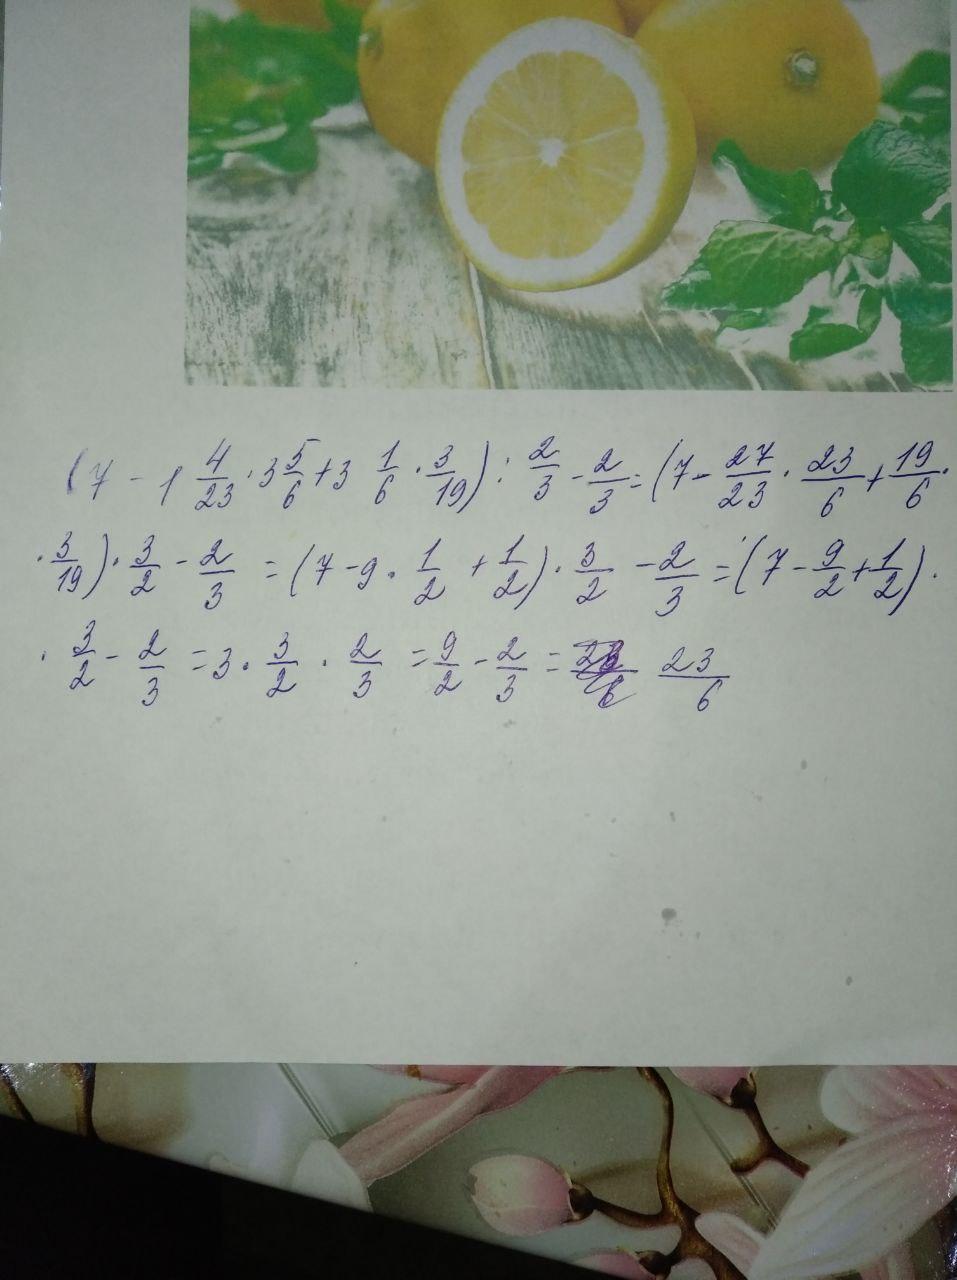 (7 - 1 4/23 · 3 5/6 + 3 1/6 · 3/19) : 2/3 - 2/3 = (7 - 27/23 · 23/6 + 19/6 ·
· 3/19) · 3/2 - 2/3 = (7 - 9 · 1/2 + 1/2) · 3/2 - 2/3 = (7 - 9/2 + 1/2) ·
· 3/2 - 2/3 = 3 · 3/2 · 2/3 = 9/2 - 2/3 = 23/6